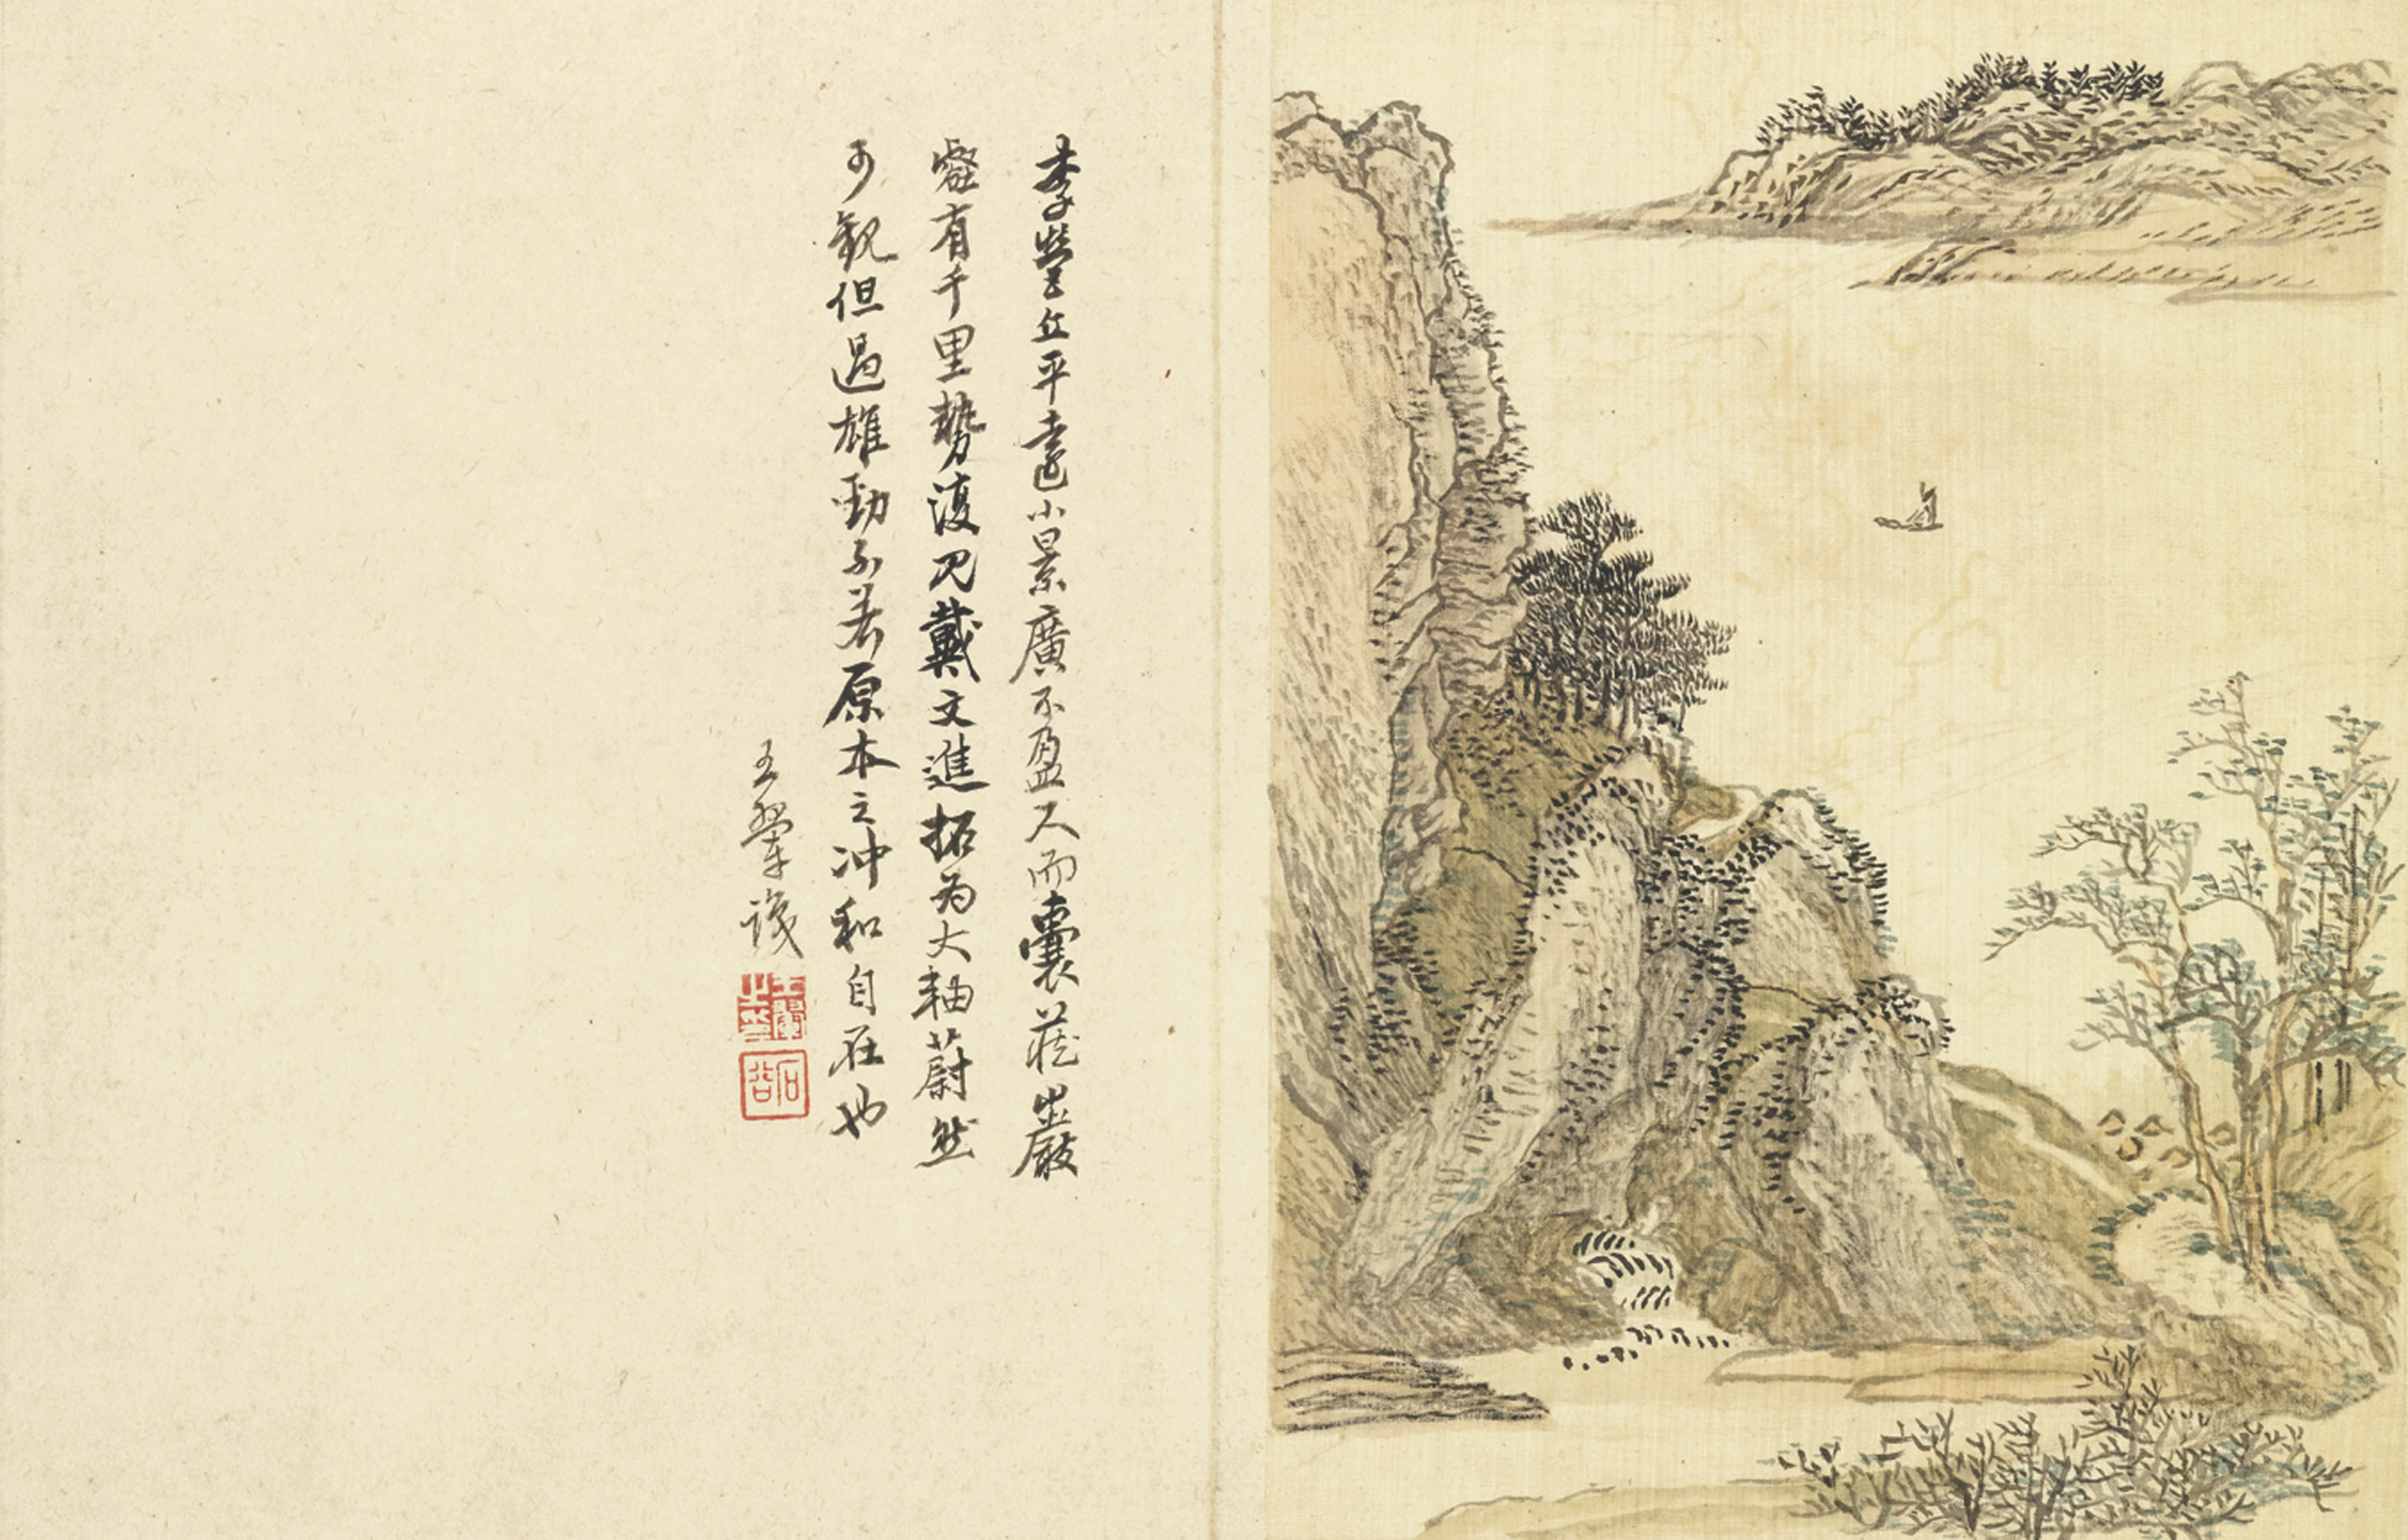 李營丘平遠小景廣不盈尺而囊茫巖
壑有千里勢復見戴文進拓為大軸蔚然
可觀但過雄勁不若原本之冲和自在也
王翬識
王翬之印
石谷